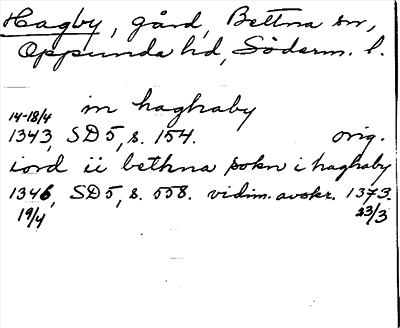 Hagby, gård, Bettna sn,
Oppunda hd, Söderm. l.
in haghaby
14-18/4
1343, SD5, s. 154. orig.
iord ii bethna sokn i haghaby
1346, SD5, s. 558. vidim. avskr. 1373.
19/4 23/3